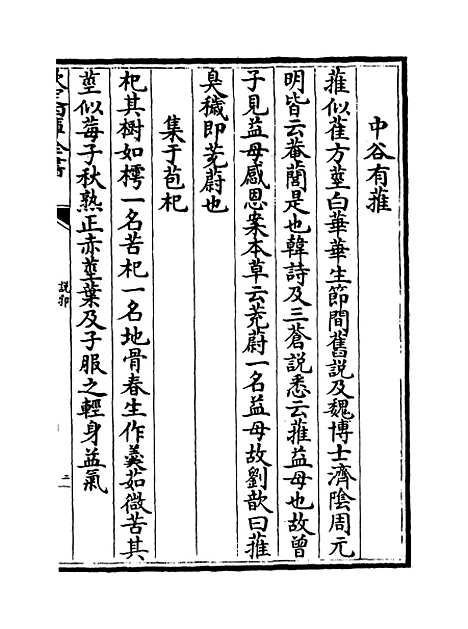 中谷有蓷
蓷似萑方莖白華華生節間舊說及魏博士濟陰周元
明皆云菴䕡是也韓詩及三蒼說悉云蓷益母也故曾
子見益母感恩案本草云茺蔚一名益母故劉歆曰蓷
臭穢即茺蔚也
集于苞杞
杞其樹如樗一名苦杞一名地骨春生作羹茹微苦其
莖似莓子秋熟正赤莖葉及子服之輕身益氣
說郛